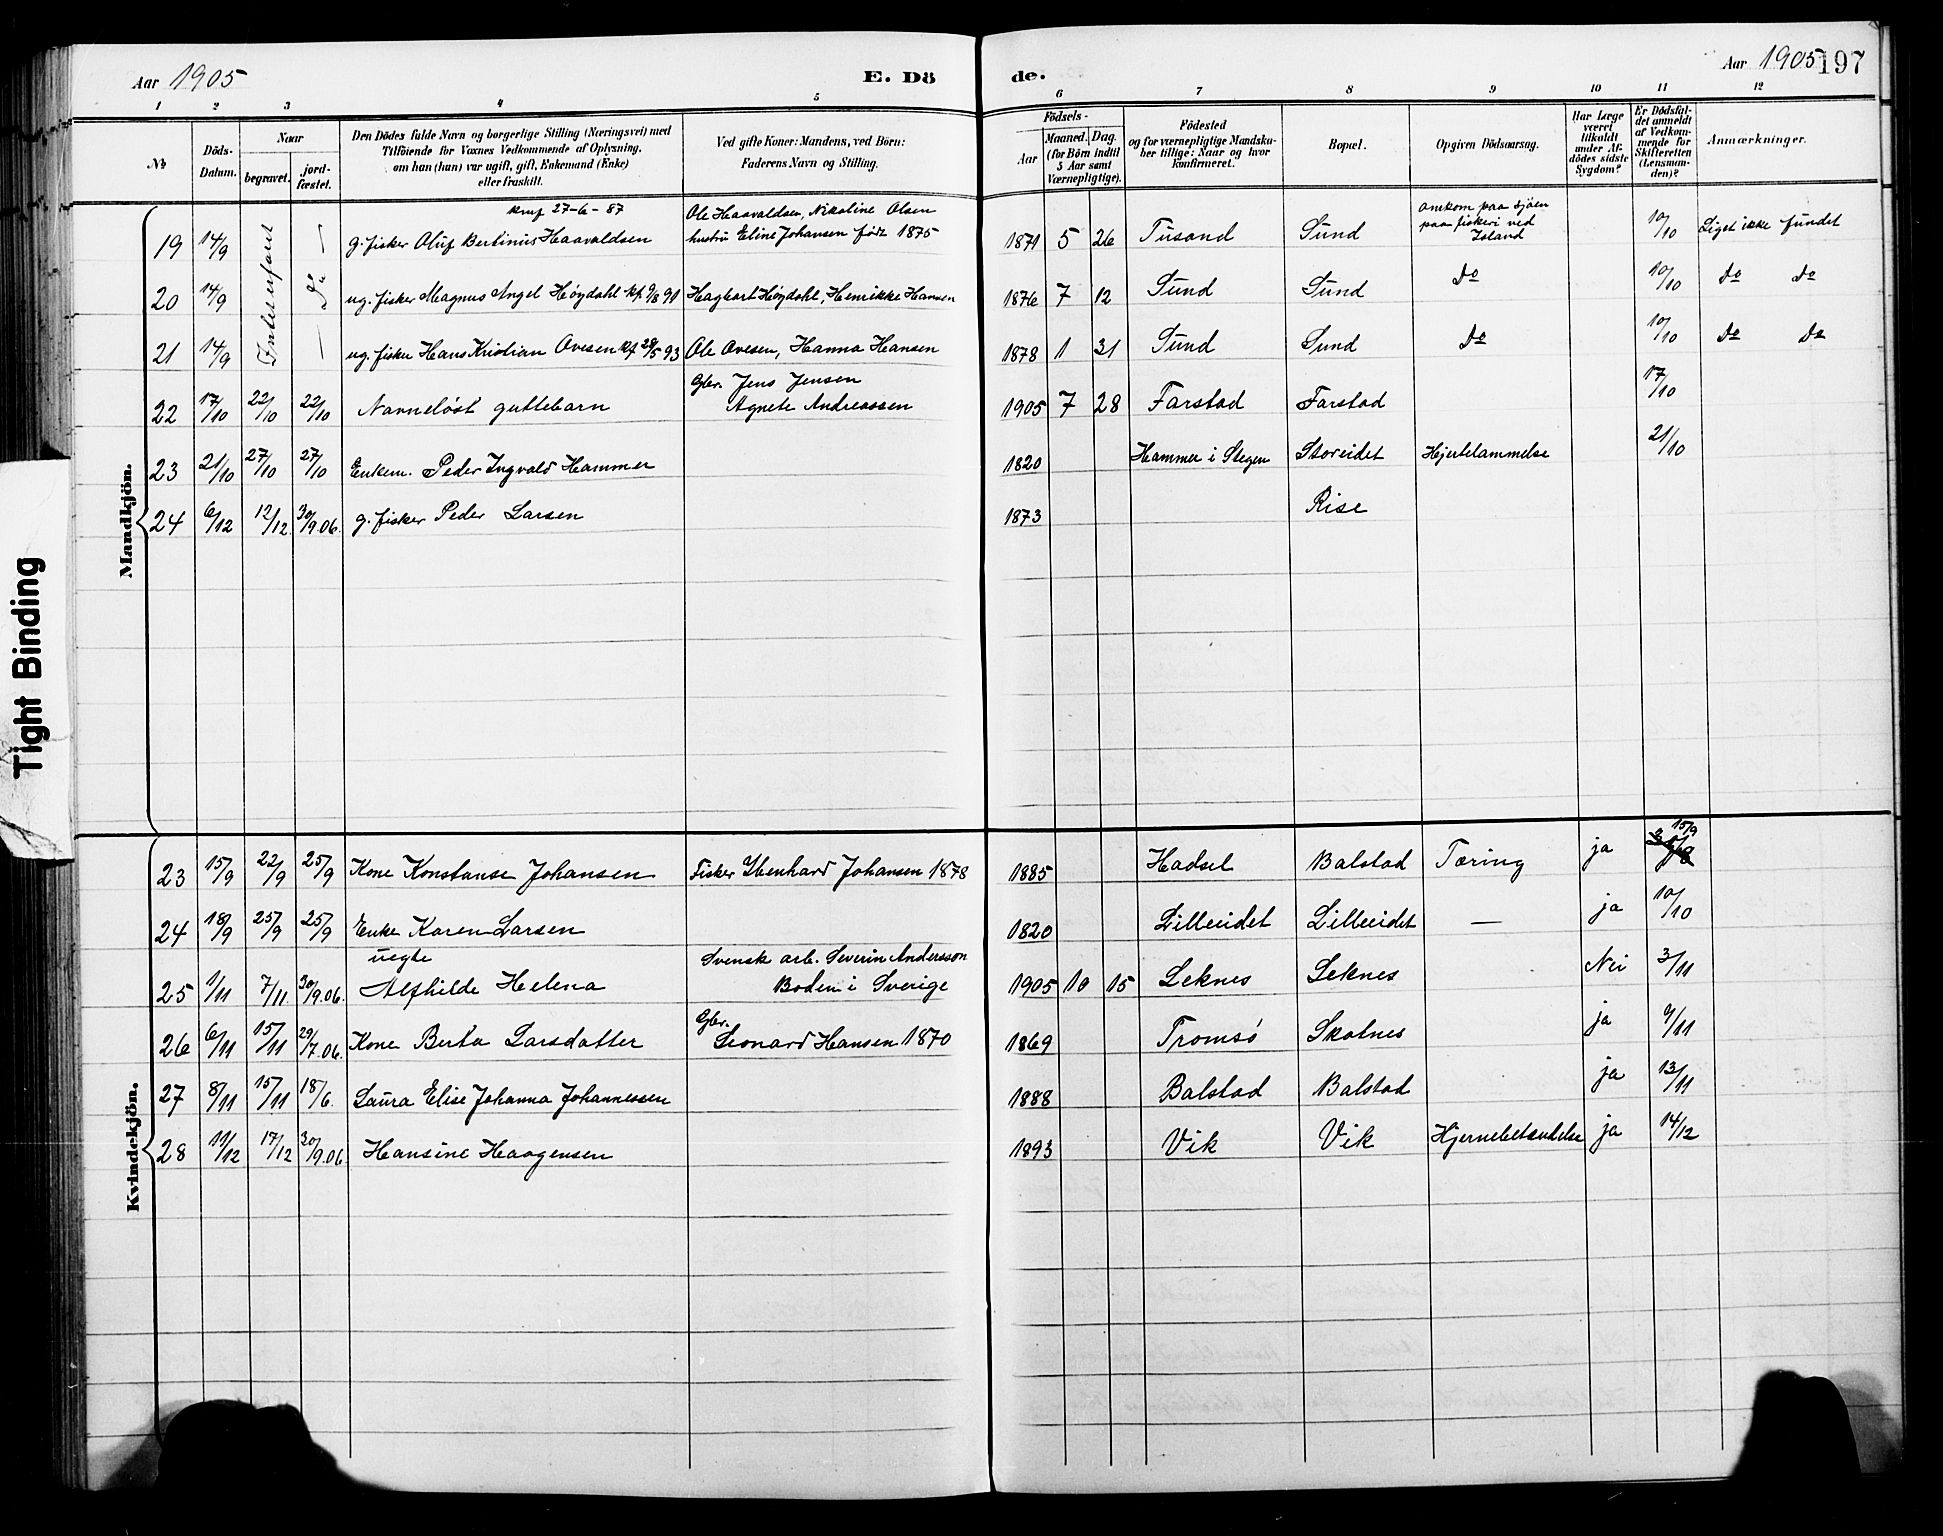 Aar 1905
E. Dö
de.
Aar 1905
197
1 2 3 4 5 6 7 8 9 10 11 12
№
Döds-
Datum.
Naar
begravet.
jord-
fæstet.
Den Dödes fulde Navn og borgerlige Stilling (Næringsvei) med
Tilföiende for Voxnes Vedkommende af Oplysning,
om han (hun) var ugift, gift, Enkemand (Enke)
eller fraskilt.
Ved gifte Koner: Mandens, ved Börn:
Faderens Navn og Stilling.
Födsels-
Aar
Maaned. Dag.
(for Börn indtil
5 Aar samt
Værnepligtige).
Födested
og for værnepligtige Mandska-
ber tillige: Naar og hvor
konfirmeret.
Bopæl.
Opgiven Dödsaarsag.
Har Læge
været
tilkaldt
under Af-
dödes sidste
Sygdom?
Er Dödsfal-
det anmeldt
af Vedkom-
mende for
Skifteretten
(Lensman-
den)?
Anmærkninger.
Mandkjön.
konf 27-6-87 Ole Haavaldsen, Nikoline Olsen omkom paa sjöen
19 14/9 g. fisker Oluf Bertinus Haavaldsen hustru Eline Johansen född 1875 1871 5 26 Tusand Sund paa fiskeri ved Island 10/10 Liget ikke fundet
20 14/9 do ug. fisker Magnus Angel Høydahl kf 9/8 91 Hagbart Høydahl, Henrikke Hansen 1876 7 12 Sund Sund do 10/10 do do
21 14/9 ug. fisker Hans Kristian Ovesen kf 28/5 93 Ole Ovesen, Hanna Hansen 1878 1 31 Sund Sund do 10/10 do do
Gbr. Jens Jensen
22 17/10 22/10 22/10 Navneløst guttebarn Agnete Andreassen 1905 7 28 Farstad Farstad 17/10
23 21/10 27/10 27/10 Enkem. Peder Ingvald Hammer 1820 Hammer i Stegen Storeidet Hjertelammelse 21/10
24 6/12 12/12 30/9.06. g. fisker Peder Larsen 1873 Rise
Kvindekjön.
23 15/9 22/9 25/9 Kone Konstanse Johansen Fisker Ibenhard Johansen 1878 1885 Hadsel Balstad Tæring ja 15/9
24 18/9 25/9 25/9 Enke Karen Larsen 1820 Lilleeidet Lilleeidet — ja 10/10
uegte Svensk arb. Severin Andersson
25 1/11 7/11 30/9.06. Alfhilde Helena Boden i Sverige 1905 10 15 Leknes Leknes Nei 3/11
26 6/11 15/11 29/7.06. Kone Berta Larsdatter Gbr. Leonard Hansen 1870 1869 Tromsø Skotnes ja 9/11
27 8/11 15/11 18/6. Laura Elise Johanna Johannessen 1888 Balstad Balstad ja 13/11
28 11/12 17/12 30/9.06 Hansine Haagensen 1893 Vik Vik Hjernebetændelse ja 14/12
Tight Binding